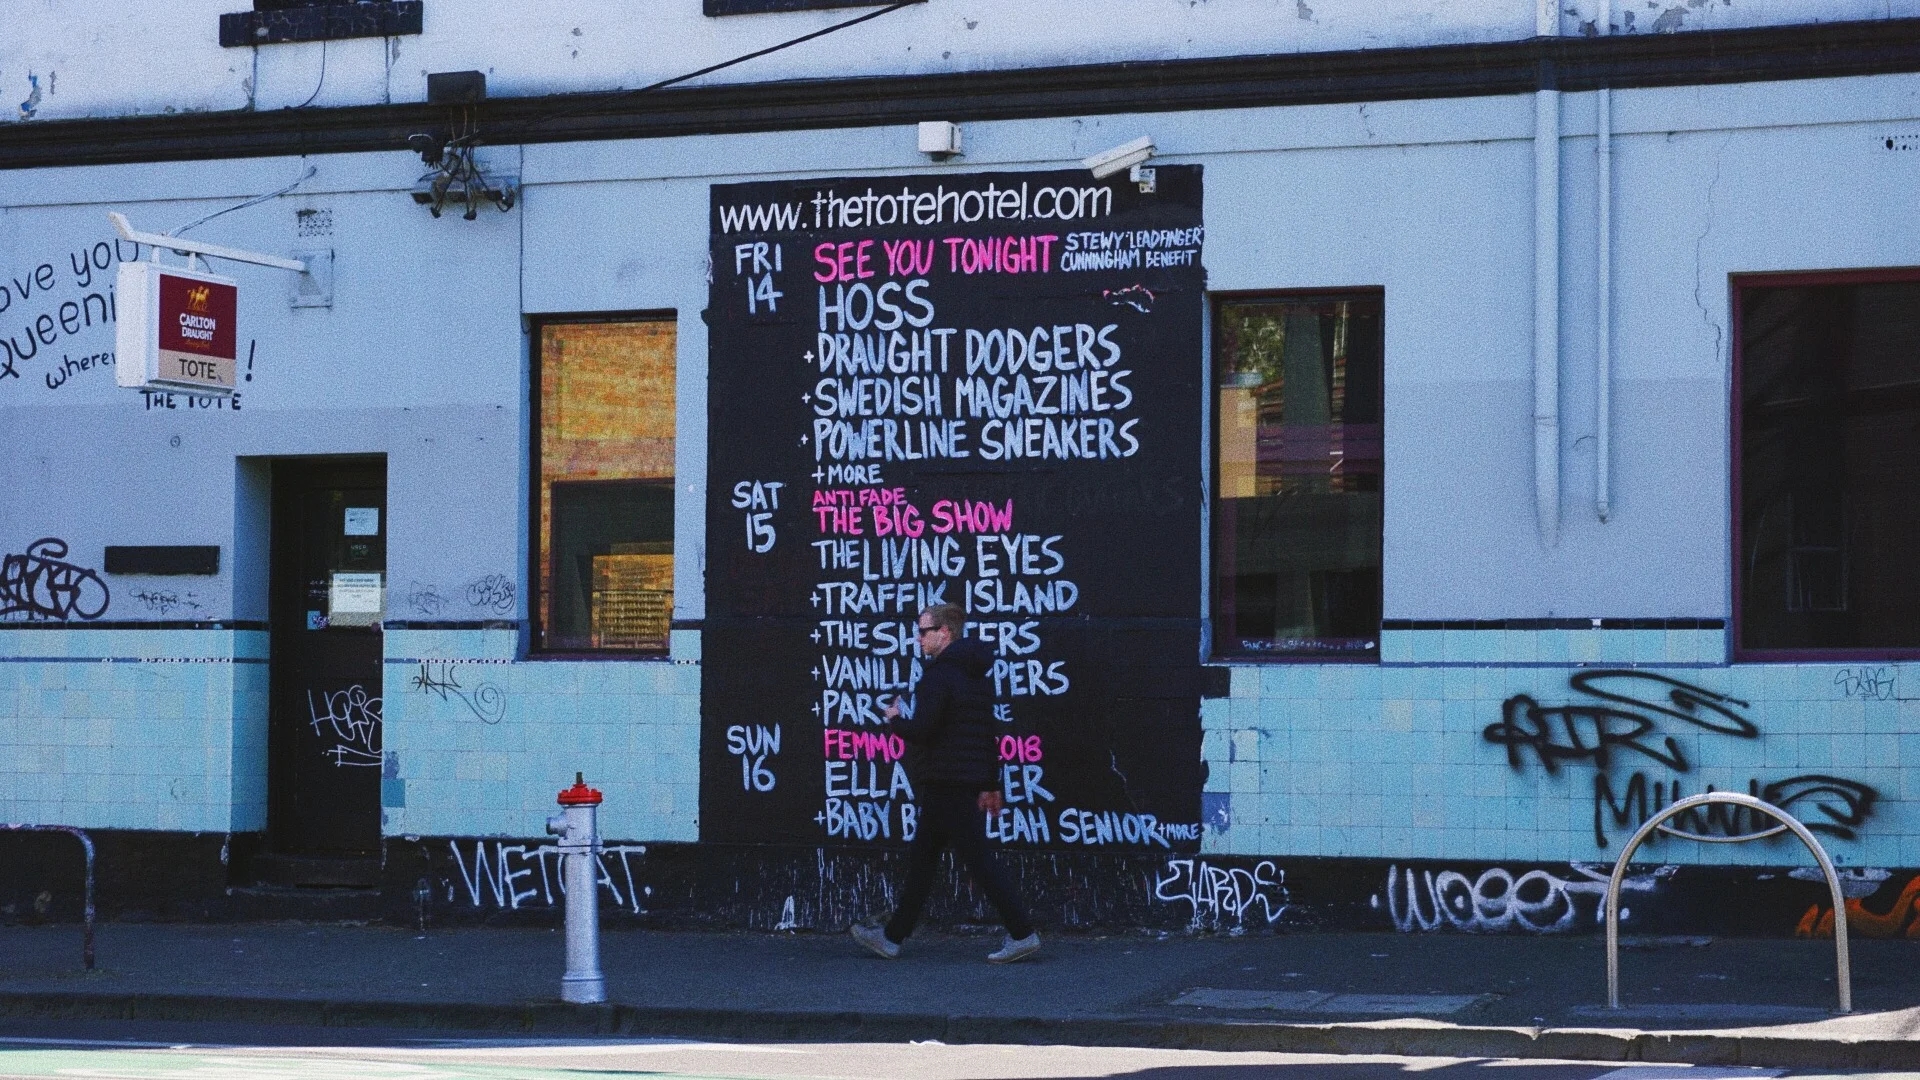 www.thetotehotel.com
FRI 14
SEE YOU TONIGHT
STEWY "LEADFINGER"
CUNNINGHAM BENEFIT
HOSS
+DRAUGHT DODGERS
+SWEDISH MAGAZINES
+POWERLINE SNEAKERS
+MORE
SAT 15
ANTI FADE
THE BIG SHOW
THE LIVING EYES
+TRAFFIK ISLAND
+THE SH ERS
+VANILLA PPERS
+PARSN RE
SUN 16
FEMMO 2018
ELLA ER
+BABY B LEAH SENIOR +MORE
ove you
Queeni
where !
THE TOTE
CARLTON
DRAUGHT
TOTE
WETCAT.